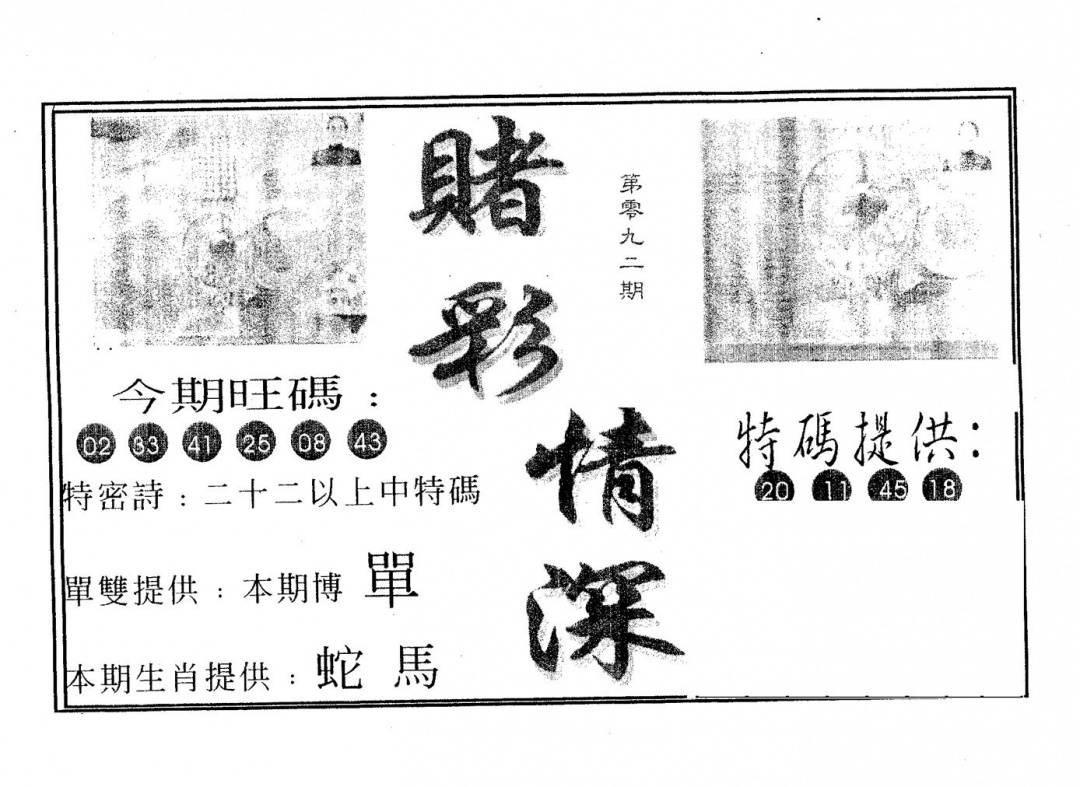 賭彩情深
第零九二期
今期旺碼：
02 33 41 25 08 43
特密詩：二十二以上中特碼
單雙提供：本期博單
本期生肖提供：蛇 馬
特碼提供：
20 11 45 18